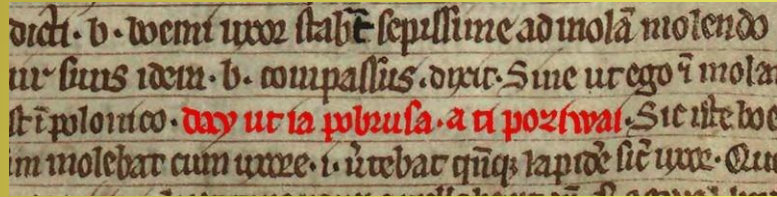 dicti · b · boemi uxor stabat sepissime ad molã molendo
ur suus idem · b · compassus · dixit · Sine ut ego ĩ molar
st ĩ polonico · day ut ia pobrusa · a ti poziwai · Sic iste boe
im molebat cum uxore · i · ũtebat qñqꝫ lapidẽ sic̃ uxor · Qu